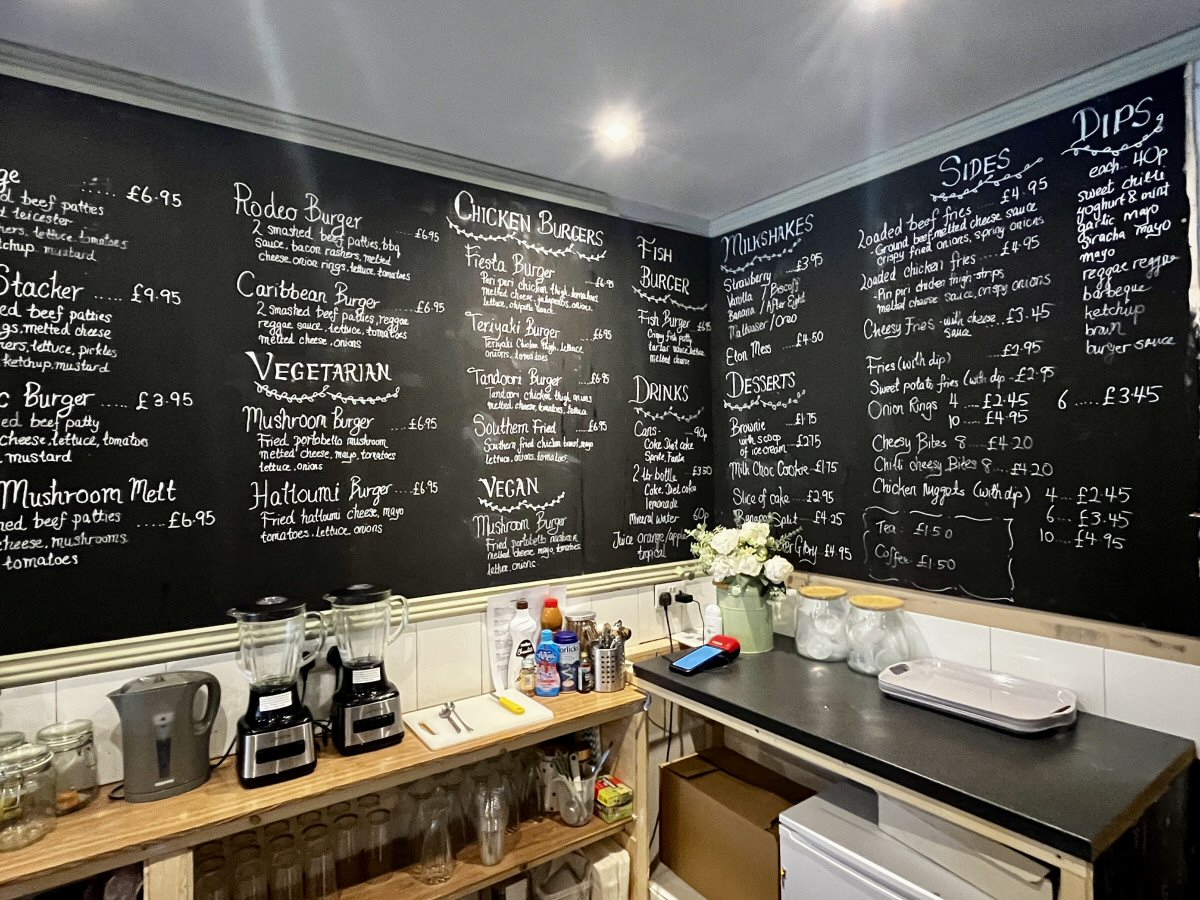 ge ..... £6.95
d beef patties
d leicester
ners, lettuce tomatoes
tchup. mustard
Stacker ..... £9.95
ed beef patties
gs, melted cheese
ners, lettuce, pickles
ketchup, mustard
c Burger ..... £3.95
ed beef patty
cheese, lettuce, tomatoes
mustard
Mushroom Melt
hed beef patties ..... £6.95
cheese, mushrooms
tomatoes
Rodeo Burger
2 smashed beef patties, bbq £6.95
sauce, bacon rashers, melted
cheese, onion rings, lettuce, tomatoes
Caribbean Burger
2 smashed beef patties, reggae ... £6.95
reggae sauce, lettuce, tomatoes
melted cheese, onions
VEGETARIAN
Mushroom Burger ..... £6.95
Fried portobello mushroom
melted cheese, mayo, tomatoes
lettuce, onions
Halloumi Burger .... £6.95
Fried halloumi cheese, mayo
tomatoes, lettuce, onions
CHICKEN BURGERS
Fiesta Burger
Peri peri chicken thigh, tomatoes £6.95
melted cheese, jalapenos, onions
lettuce, chipotle sauce
Teriyaki Burger ... £6.95
Teriyaki Chicken thigh, lettuce,
onions, tomatoes
Tandoori Burger ... £6.95
Tandoori chicken thigh, onions
melted cheese, tomatoes, lettuce
Southern Fried ... £6.95
Southern fried chicken breast, mayo
lettuce, onions, tomatoes
VEGAN
Mushroom Burger
Fried portobello mushroom
melted cheese, mayo, tomatoes
lettuce, onions
FISH
BURGER
Fish Burger £6.95
Crispy fish patty
tartar sauce, lettuce
melted cheese
DRINKS
Cans ... 90p
Coke, Diet coke
Sprite, Fanta
2 Ltr bottle ... £3.50
Coke, Diet coke
lemonade
Mineral water 60p
Juice orange/apple
tropical
MILKSHAKES
Strawberry ... £3.95
Vanilla / Biscoff
Banana / After Eight
Maltesier / Oreo
Eton Mess ... £4.50
DESSERTS
Brownie ... £1.75
with scoop ... £2.75
of ice cream
Milk Choc Cookie ... £1.75
Slice of cake ... £2.95
Banana Split ... £4.25
Glory ... £4.95
SIDES
Loaded beef fries ... £4.95
- Ground beef, melted cheese sauce
crispy fried onions, spring onions
Loaded chicken fries .... £4.95
- Piri piri chicken thigh strips
melted cheese sauce, crispy onions
Cheesy Fries - with cheese ... £3.45
sauce
Fries (with dip) ..... £2.95
Sweet potato fries (with dip ... £2.95
Onion Rings 4 .... £2.45 6 .... £3.45
10 .... £4.95
Cheesy Bites 8 .... £4.20
Chilli cheesy Bites 8 ... £4.20
Chicken Nuggets (with dip) 4 ... £2.45
6 ... £3.45
10 ... £4.95
Tea £1.50
Coffee £1.50
DIPS
each .. 40p
sweet chilli
yoghurt & mint
garlic mayo
siracha mayo
mayo
reggae reggae
barbeque
ketchup
brown
burger sauce